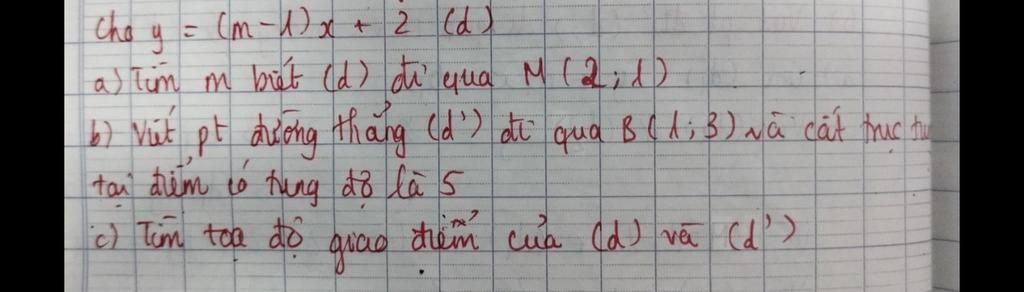 Cho y = (m-1)x + 2 (d)
a) Tìm m biết (d) đi qua M(2;1)
b) Viết pt đường thẳng (d') đi qua B(1;3) và cắt trục tung
tại điểm có tung độ là 5
c) Tìm toạ độ giao điểm của (d) và (d')